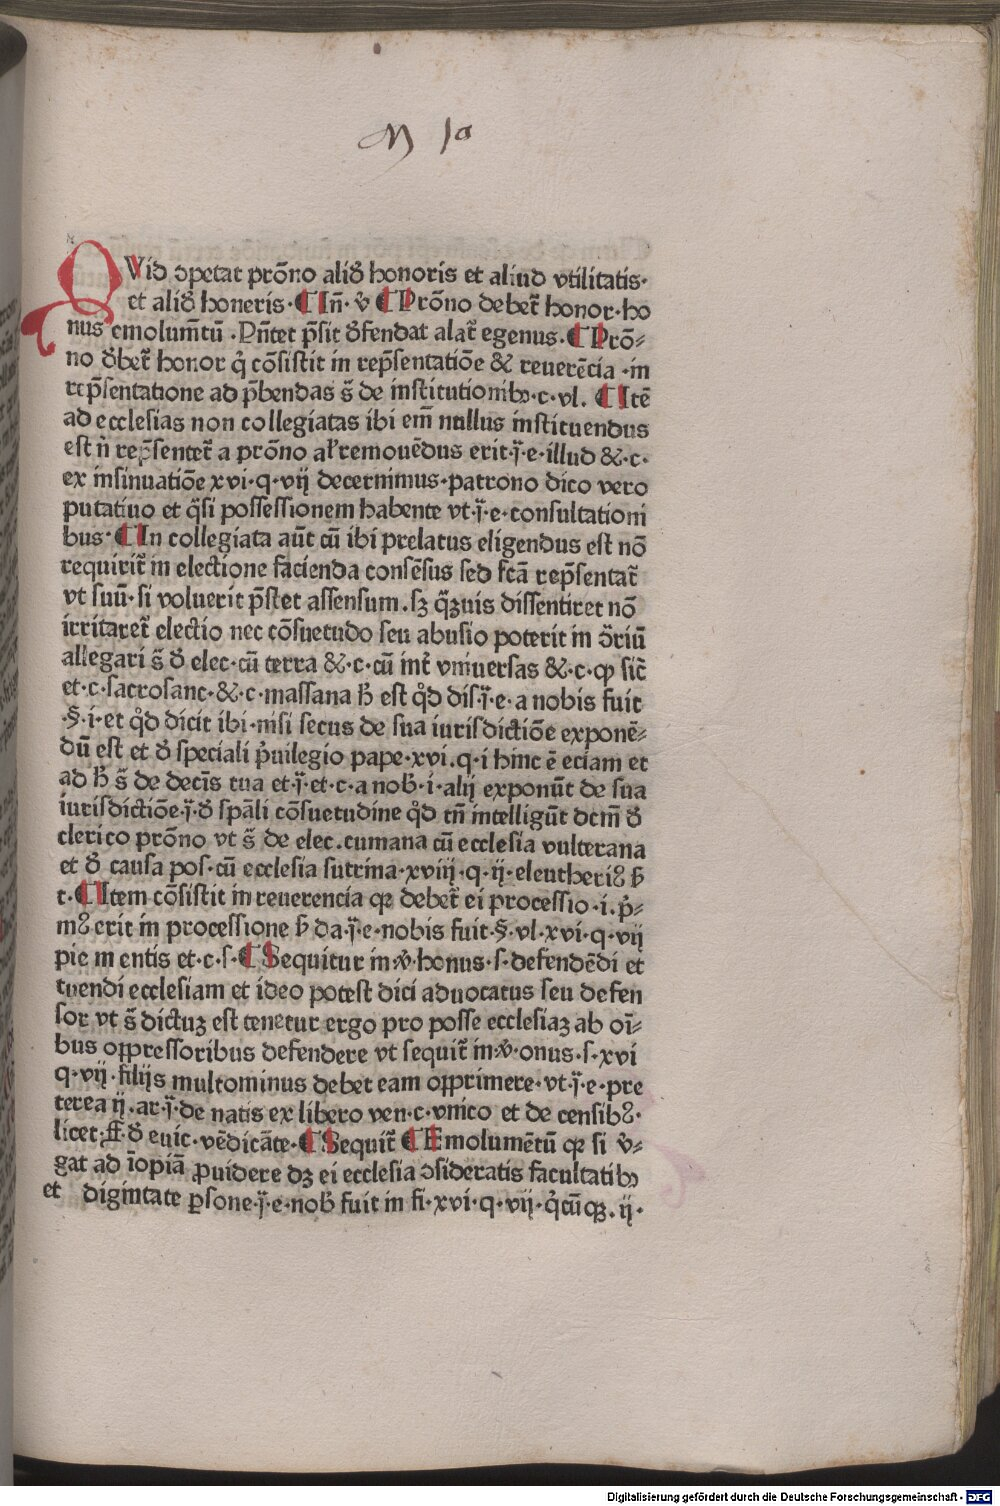 M 10
QVid ꝯpetat prōno aliḋ honoris et aliud vtilitatis·
et aliḋ honeris· ¶ In̄· v̇ ¶ Prōno debet̃ honor·ho
nus emolumt̄ū ·Pn̄tet p̄sit ḋfendat alat̃ egenus. ¶ Prō⸗
no ḋbet̃ honor q̇ cōsistit in rep̄sentatiōe & reuerēcia ·in
rep̄sentatione ad p̄bendas s̃ de institutionibꝰ·c·vl. ¶ Itē
ad ecclesias non collegiatas ibi em̄ nullus instituendus
est n̉ rep̄sentet̃ a prōno al̃remouēdus erit·j̃·e·illud &·c·
ex insinuatiōe xvi·q·vij decernimus·patrono dico vero
putatiuo et q̃si possessionem habente vt·j̃·e·consultationi
bus· ¶ In collegiata aūt cū ibi prelatus eligendus est nō
requirit̃ in electione facienda consēsus sed fcā rep̄sentat̃
vt suū·si voluerit p̄stet assensum.sꝫ q̃ꝫuis dissentiret nō
irritaret̃ electio nec cōsuetudo seu abusio poterit in ꝯ̄riū
allegari s̃ ḋ elec·cū terra &·c·cū int̃ vniuersas &·c·ꝙ sic̄
et·c·sacrosanc·&·c·massana h̃ est q̊d dis·j̃·e·a nobis fuit
·§·i·et q̊d dicit ibi·nisi secus de sua iurisdictiōe exponē⸗
dū est et ḋ speciali p̉uilegio pape·xvi.q·i hinc ē eciam et
ad h̃ s̃ de decīs tua et·j̃·et·c·a nob̃·i·alij exponūt de sua
iurisdictiōe·j̃·ḋ spāli cōsuetudine q̊d tn̄ intelligūt dcm̄ ḋ
clerico prōno vt s̃ de elec.cumana cū ecclesia vulterana
et ḋ causa pos·cū ecclesia sutrina·xviij·q·ij·eleutheriꝰ h̃
t· ¶ Item cōsistit in reuerencia qꝛ debet̃ ei processio·i.p̉⸗
mꝰ erit in processione h̃ da·j̃·e·nobis fuit·§·vl·xvi·q·vij
pie m entis et·c·s· ¶ Sequitur in·v̇·honus·s·defendēdi et
tuendi ecclesiam et ideo potest dici aduocatus seu defen
sor vt s̃ dictuꝫ est tenetur ergo pro posse ecclesiaꝫ ab oī⸗
bus oppressoribus defendere vt sequit̃ in·v̇·onus·s·xvi
q·vij·filijs multominus debet eam opprimere·vt·j̃·e·pre
terea ij·ar·j̃·de natis ex libero ven·c·vnico et de censibꝰ·
licet·ff·ḋ euic·vēdicāte· ¶ Sequit̃ ¶ Emolumētū qꝛ si v̇⸗
gat ad īopiā ꝓuidere dꝫ ei ecclesia ꝯsideratis facultatibꝰ
et digintate ꝑsone·j̃·e·nob̃ fuit in fi·xvi·q·vij·q̉cūqꝫ.ij·
Digitalisierung gefördert durch die Deutsche Forschungsgemeinschaft · DFG